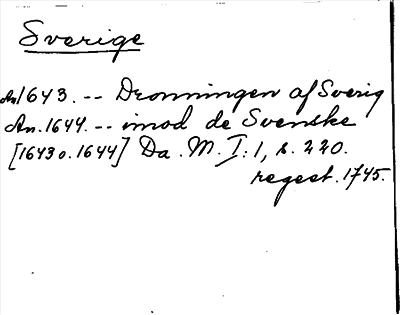 Sverige
An 1643. -- Dronningen af Sverig
An. 1644. -- imod de Svenske
[1643 o. 1644] Da. M. I: 1, s. 220.
regest. 1745.